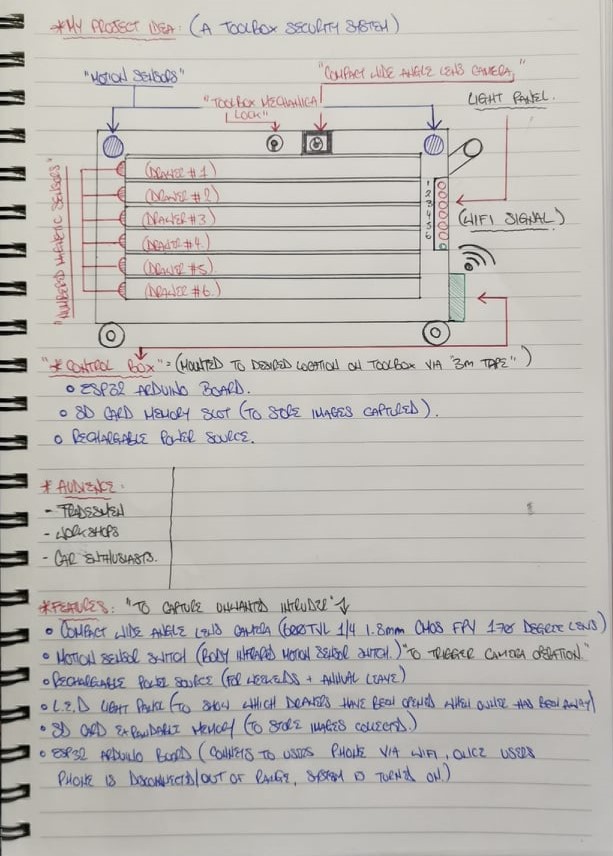 *MY PROJECT IDEA: (A TOOLBOX SECURITY SYSTEM)
"COMPACT WIDE ANGLE LENS CAMERA,"
"MOTION SENSORS"
"TOOLBOX MECHANICAL
LOCK"
LIGHT PANEL.
"NUMBERED MAGNETIC SENSORS"
(DRAWER #1)
(DRAWER #2)
(DRAWER #3)
(DRAWER #4.)
(DRAWER #5)
(DRAWER #6.)
1
2
3
4
5
6
(WIFI SIGNAL)
"*CONTROL BOX" = (MOUNTED TO DESIRED LOCATION ON TOOLBOX VIA "3M TAPE")
o ESP32 ARDUINO BOARD.
o SD CARD MEMORY SLOT (TO STORE IMAGES CAPTURED).
o RECHARGABLE POWER SOURCE.
* AUDIENCE:
- TRADESMEN
- WORKSHOPS
- CAR ENTHUSIASTS.
*FEATURES: "TO CAPTURE UNWANTED INTRUDER" ↓
• COMPACT WIDE ANGLE LENS CAMERA (600TVL 1/4 1.8mm CMOS FPV 170 DEGREE LENS)
• MOTION SENSOR SWITCH (BODY INFRARED MOTION SENSOR SWITCH.) "TO TRIGGER CAMERA OPERATION."
• RECHARGABLE POWER SOURCE (FOR WEEKENDS + ANNUAL LEAVE)
• L.E.D LIGHT PANEL (TO SHOW WHICH DRAWERS HAVE BEEN OPENED WHEN OWNER HAS BEEN AWAY)
• SD CARD EXPANDABLE MEMORY (TO STORE IMAGES COLLECTED.)
• ESP32 ARDUINO BOARD (CONNECTS TO USERS PHONE VIA WIFI, ONCE USERS
PHONE IS DISCONNECTED/OUT OF RANGE, SYSTEM IS TURNED ON.)